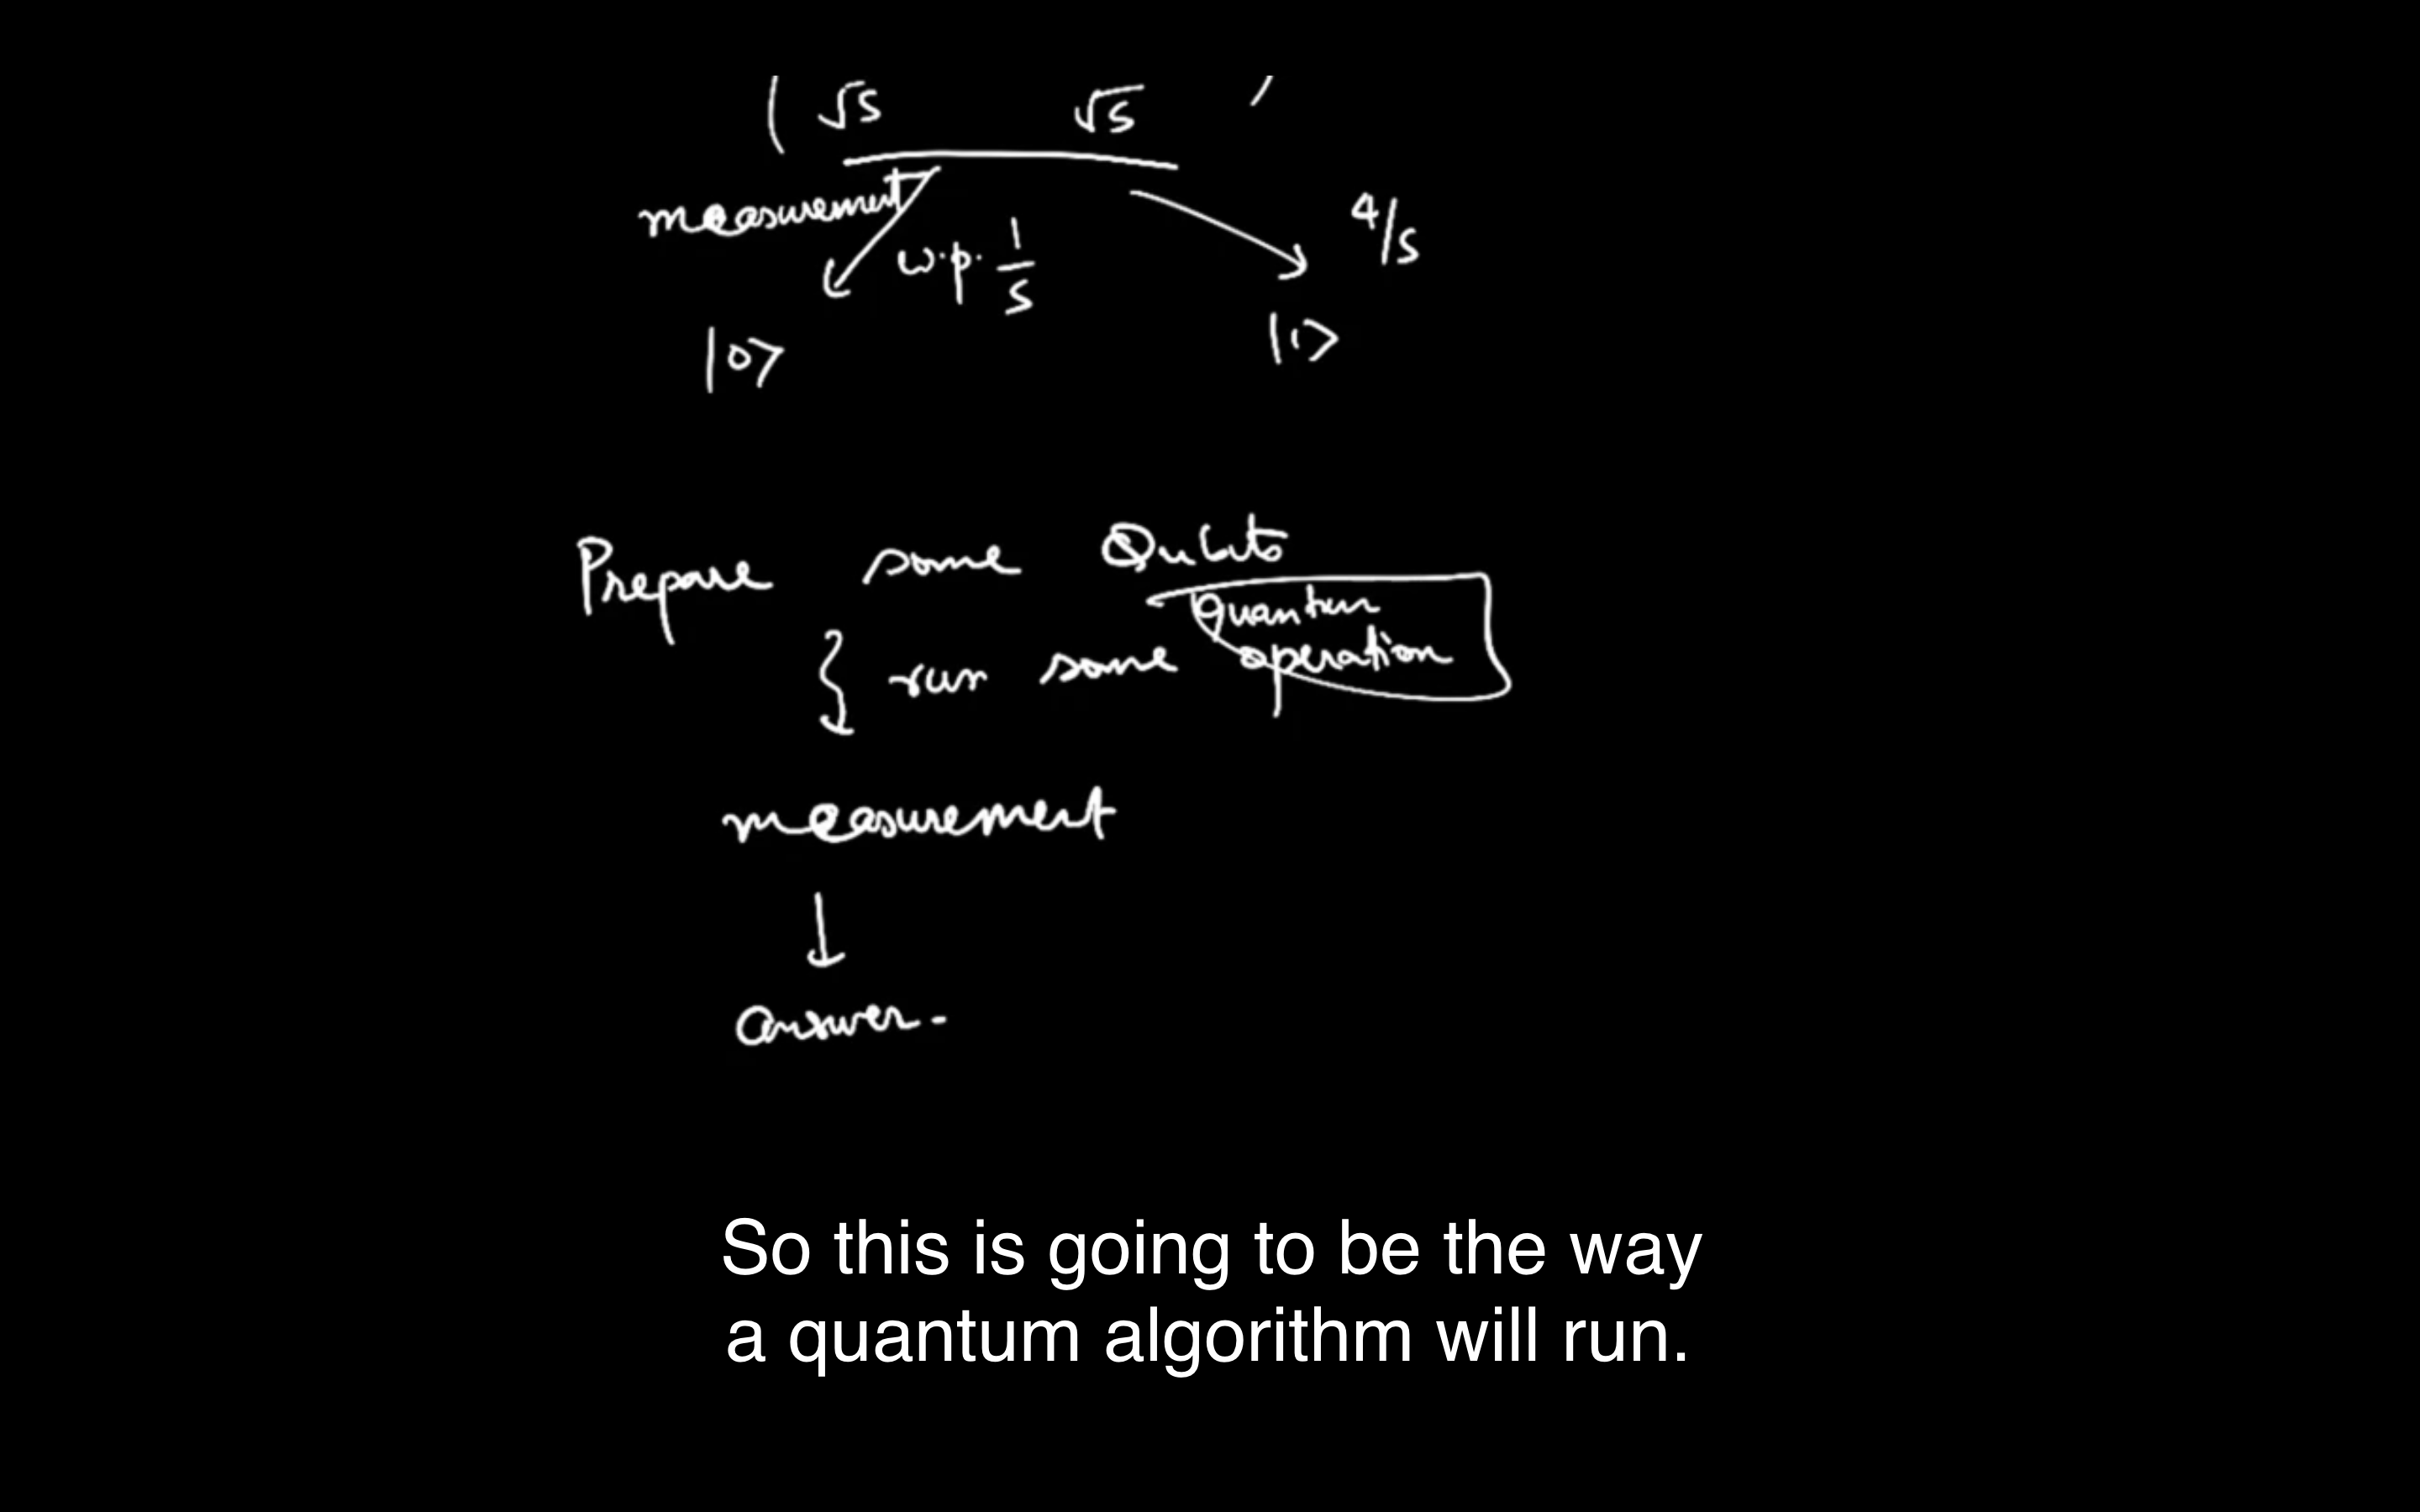 ( √5 √5 )
measurement w.p. 1/5 4/5
|0> |1>
Prepare some Qubits
run some quantum operation
measurement
answer.
So this is going to be the way
a quantum algorithm will run.